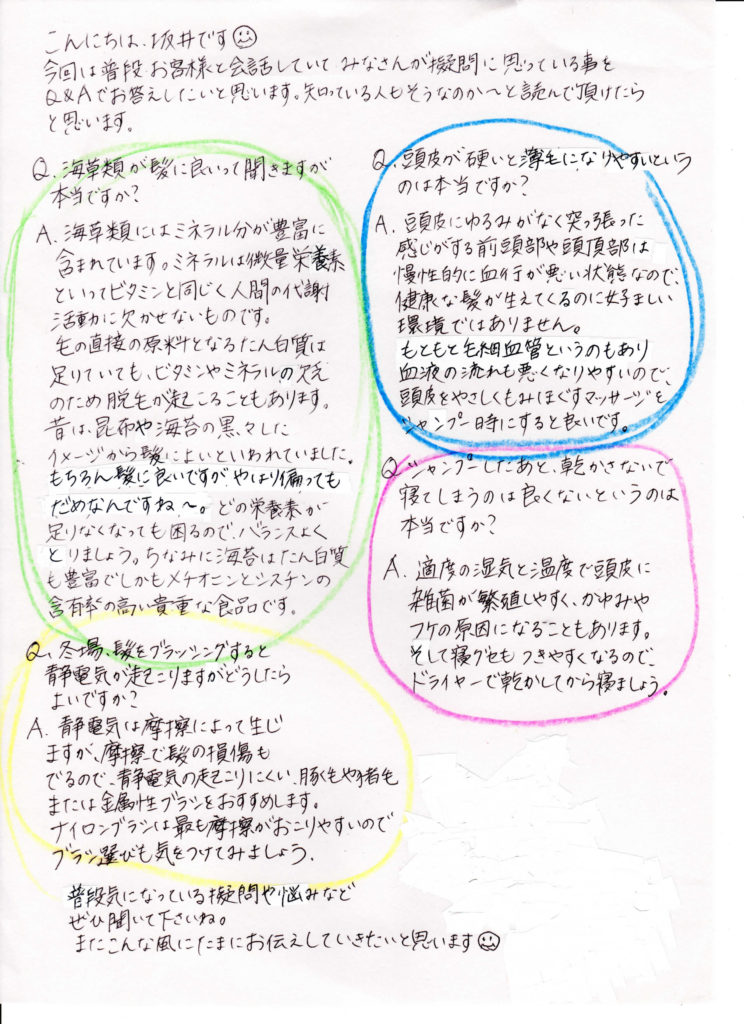 こんにちは、坂井です
今回は普段お客様と会話していてみなさんが擬問に思っている事を
Q&Aでお答えしたいと思います。知っている人もそうなのか〜と読んで頂けたら
と思います。
Q、海草類が髪に良いって聞きますが
本当ですか?
A、海草類にはミネラル分が豊富に
含まれています。ミネラルは微量栄養素
といってビタミンと同じく人間の代謝
活動に欠かせないものです。
毛の直接の原料となるたん白質は
足りていても、ビタミンやミネラルの欠乏
のため脱毛が起こることもあります。
昔は、昆布や海苔の黒々した
イメージから髪によいといわれていました。
もちろん髪に良いですがやはり偏っても
だめなんですね〜。どの栄養素が
足りなくなっても困るので、バランスよく
とりましょう。ちなみに海苔はたん白質
も豊富でしかもメチオニンとシスチンの
含有率の高い貴重な食品です。
Q、冬場、髪をブラッシングすると
静電気が起こりますがどうしたら
よいですか?
A、静電気は摩擦によって生じ
ますが、摩擦で髪の損傷も
でるので、静電気の起こりにくい、豚毛や猪毛
または金属性ブラシをおすすめします。
ナイロンブラシは最も摩擦がおこりやすいので
ブラシ選びも気をつけてみましょう。
Q、頭皮が硬いと薄毛になりやすいという
のは本当ですか?
A、頭皮にゆるみがなく突っ張った
感じがする前頭部や頭頂部は
慢性的に血行が悪い状態なので、
健康な髪が生えてくるのに好ましい
環境ではありません。
もともと毛細血管というのもあり
血液の流れも悪くなりやすいので、
頭皮をやさしくもみほぐすマッサージを
シャンプー時にすると良いです。
Q シャンプーしたあと、乾かさないで
寝てしまうのは良くないというのは
本当ですか?
A、適度の湿気と温度で頭皮に
雑菌が繁殖しやすく、かゆみや
フケの原因になることもあります。
そして寝グセもつきやすくなるので、
ドライヤーで乾かしてから寝ましょう。
普段気になっている擬問や悩みなど
ぜひ聞いて下さいね。
またこんな風にたまにお伝えしていきたいと思います